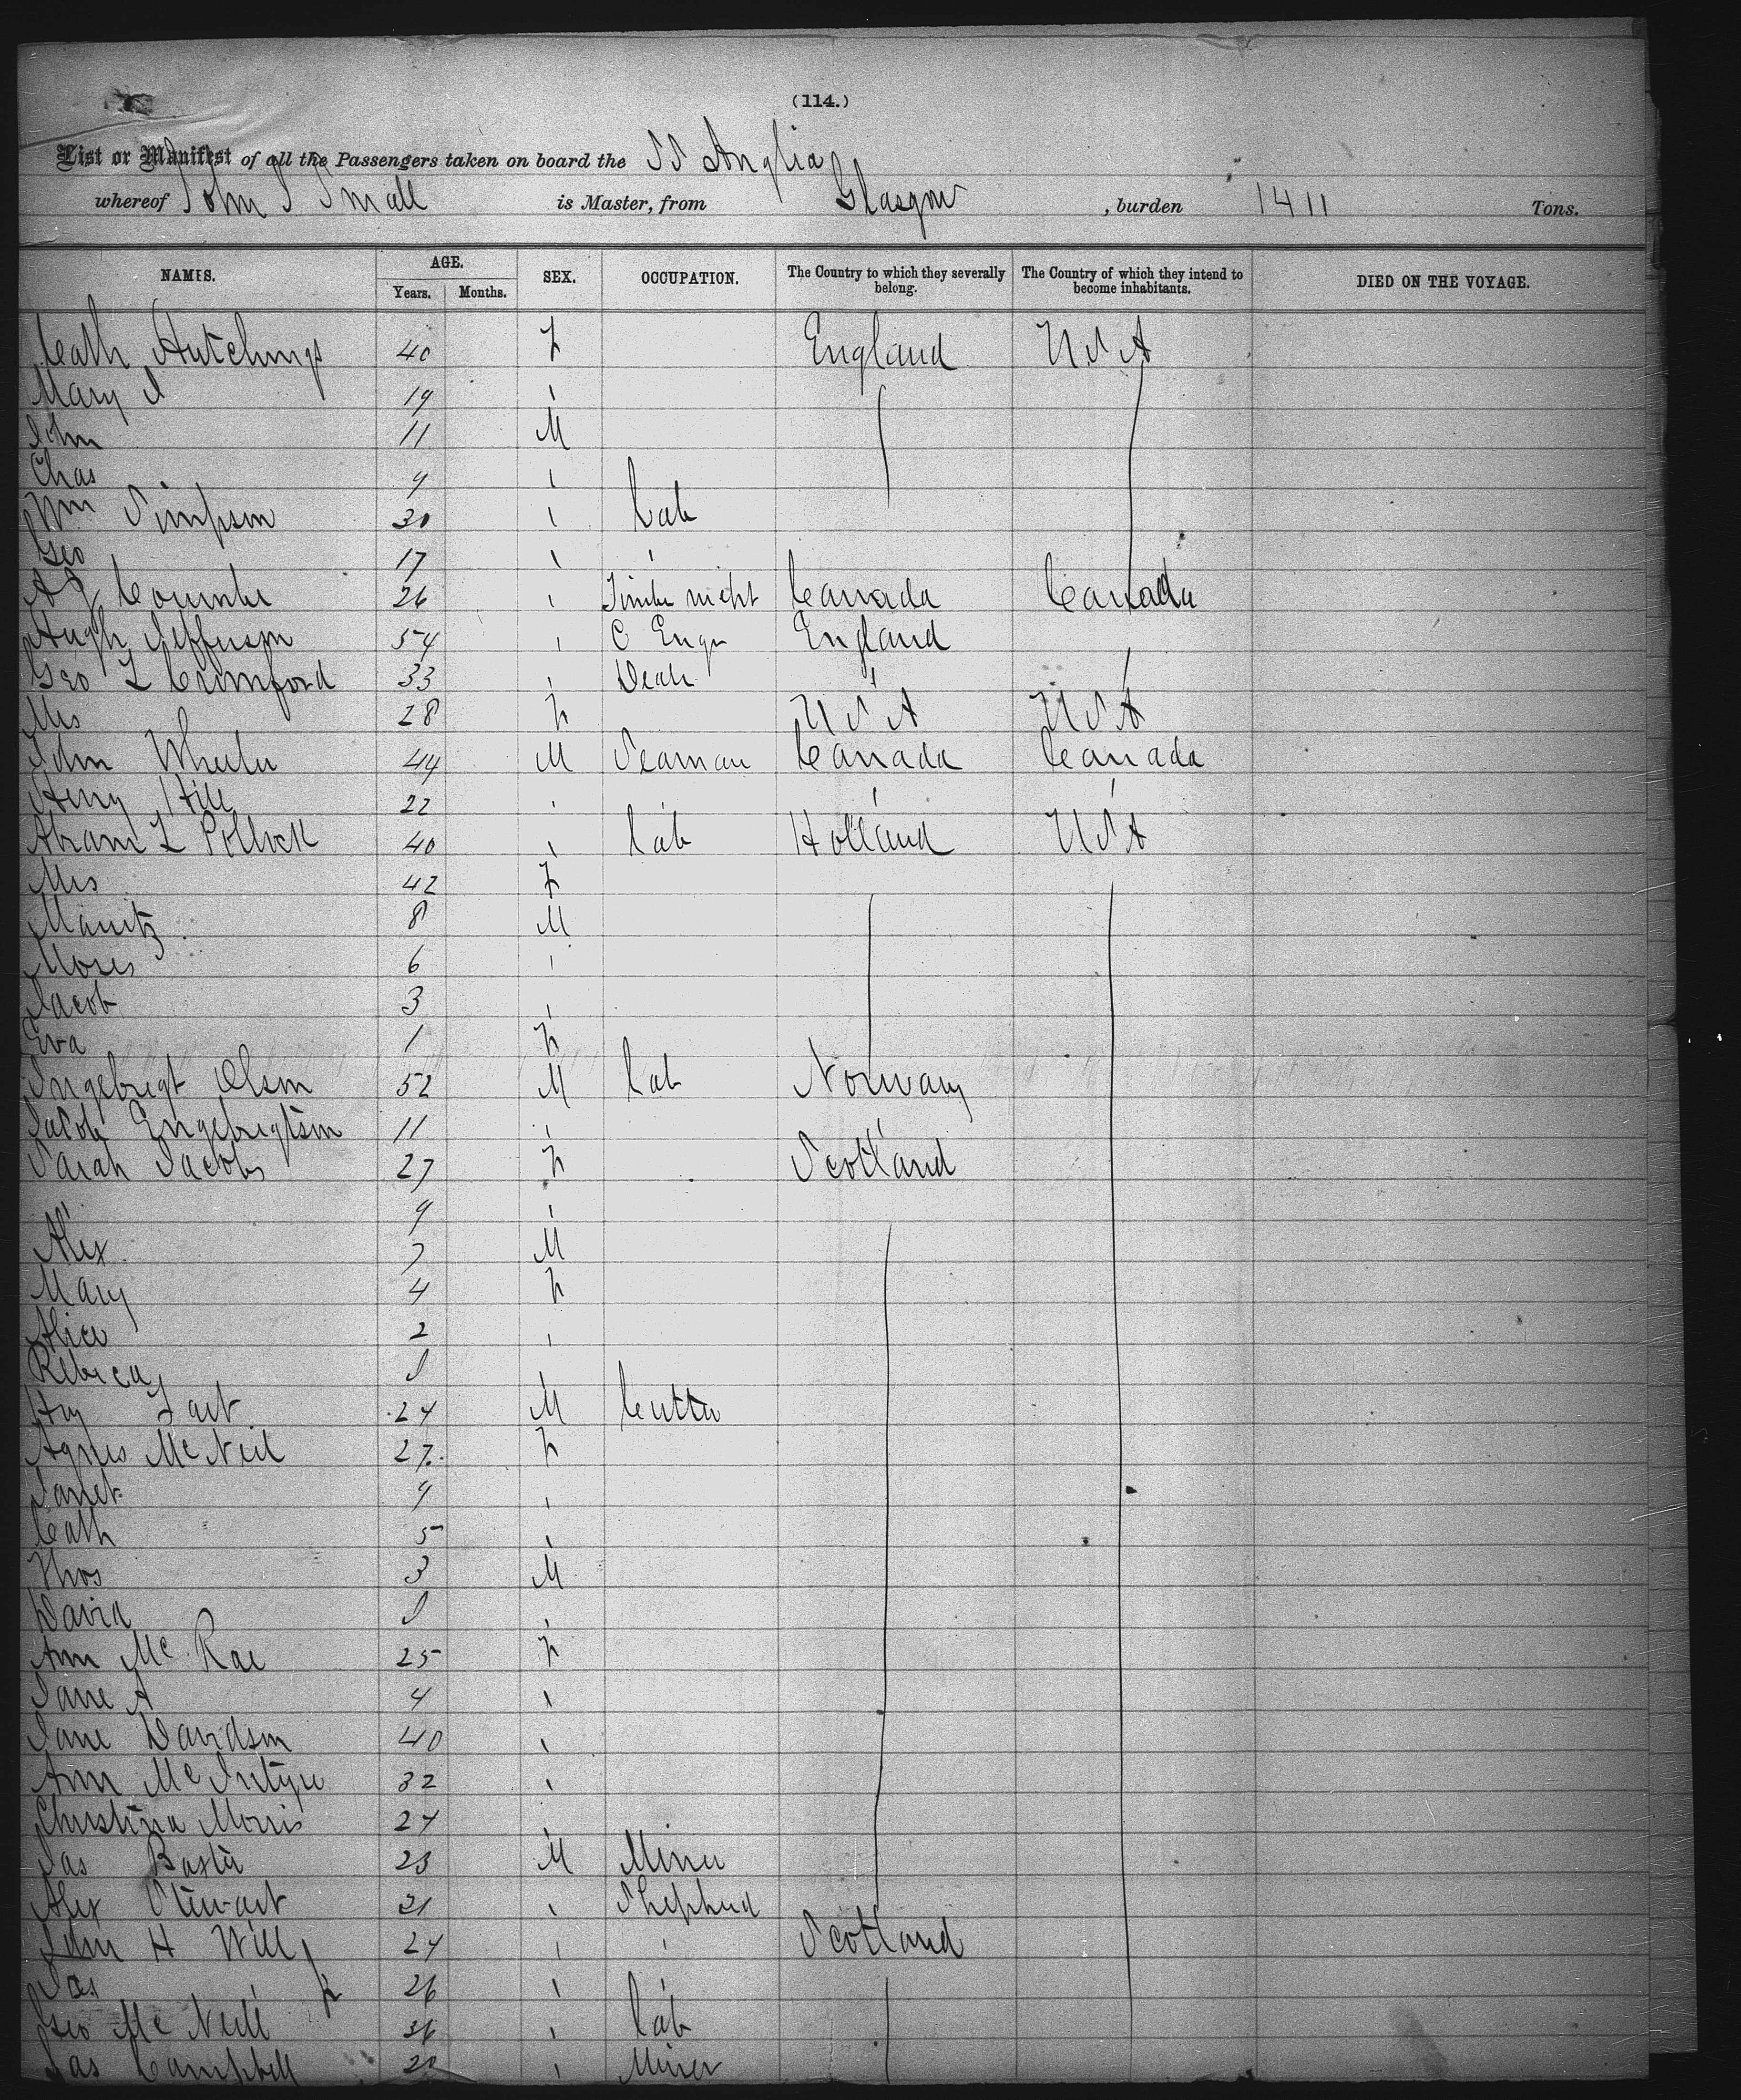 (114.)
List or Manifest of all the Passengers taken on board the SS Anglia
whereof John S Small is Master, from Glasgow , burden 1411 Tons.
NAMES. AGE. Years. Months. SEX. OCCUPATION. The Country to which they severally belong. The Country of which they intend to become inhabitants. DIED ON THE VOYAGE.
Cath Hutchings 40 F England U.S.A
Mary J 19 "
John 11 M
Chas 9 "
Wm Simpson 30 " Lab
Geo 17 " "
26 " Canada Canada
Hugh Jefferson 54 " C Engr England
Geo L 33 " "
Mrs 28 F U S A U S A
John Wheeler 44 M Seaman Canada Canada
Henry Hill 22 " " "
Abram L Pollock 40 " Lab Holland U S A
Mrs 42 F
Mauritz 8 M
Moses 6 "
Jacob 3 "
Eva 1 F
Ingebrigt Olsen 52 M Lab Norway
Jacob Engebrigtsen 11 " "
Sarah Jacobs 27 F Scotland
" 9 "
Alex 7 M
Mary 4 F
Alice 2 "
Rebeca "
Hy 24 M Cutter
Agnes McNeil 27 F
Janet 9 "
Cath 5 "
Thos 3 M
David "
Ann McRae 25 F
Jane A 4 "
Jane Davidson 40 "
Ann McIntyre 32 "
Christina Morris 24 "
Jas Baxter 23 M Miner
Alex Stewart 21 " Shepherd
John H Will 24 " " Scotland
Jas " 26 "
Geo McNeill 26 " Lab
Jas Campbell 20 " Miner